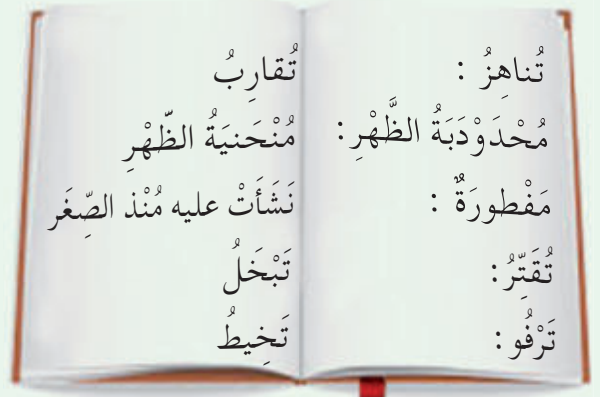 تُناهِزُ : تُقارِبُ
مُحْدَوْدَبَةُ الظَّهْرِ: مُنْحَنيَةُ الظّهْرِ
مَفْطورَةٌ : نَشَأَتْ عليه مُنْذ الصِّغَر
تُقَتِّرُ: تَبْخَلُ
تَرْفُو: تَخِيطُ